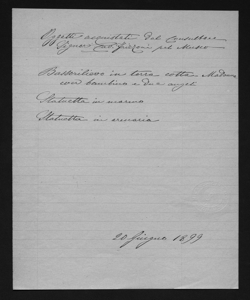 Oggetti acquistati dal Consultore
Signor pel Museo
Bassorilievo in terra cotta Madonna
con bambino e due angeli
Statuetta in marmo
Statuetta in
20 Giugno 1899